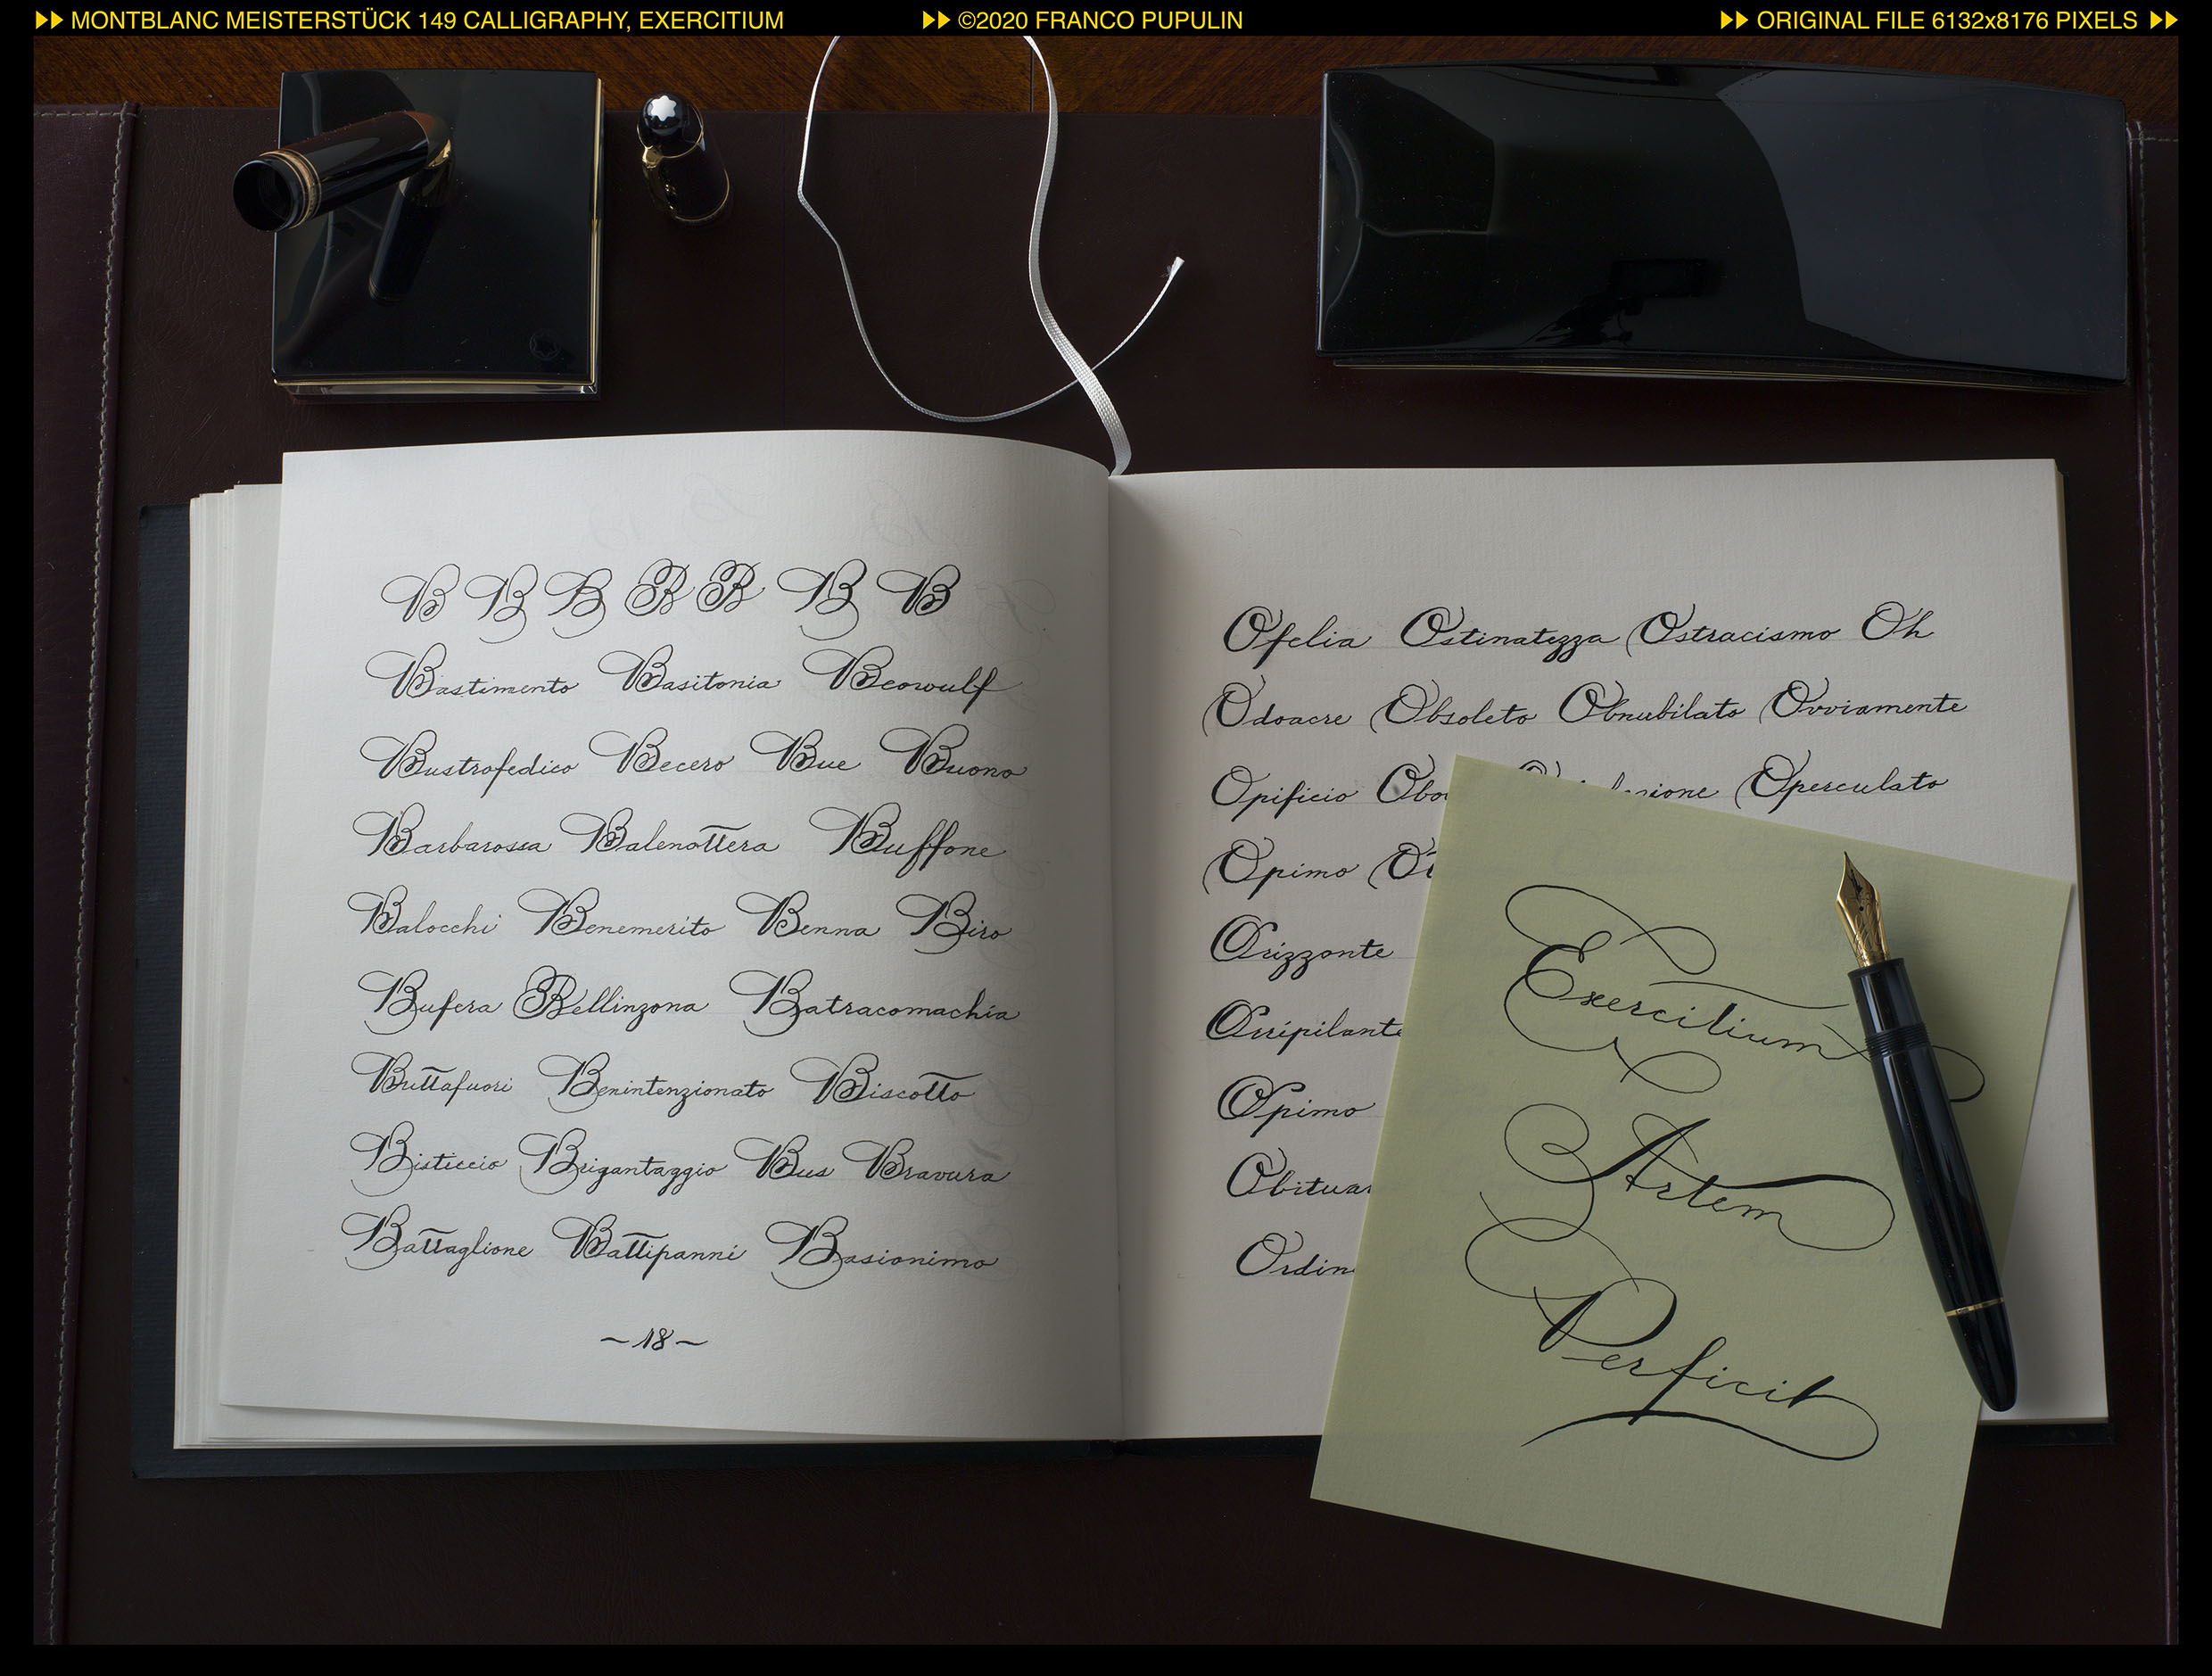 MONTBLANC MEISTERSTÜCK 149 CALLIGRAPHY, EXERCITIUM ©2020 FRANCO PUPULIN ORIGINAL FILE 6132x8176 PIXELS
B B B B B B B
Bastimento Basitonia Beowulf
Bustrofedico Becero Bue Buono
Barbarossa Balenottera Buffone
Balocchi Benemerito Benna Biro
Bufera Bellinzona Batracomachia
Buttafuori Benintenzionato Biscotto
Bisticcio Brigantaggio Bus Bravura
Battaglione Battipanni Basionimo
~18~
Ofelia Ostinatezza Ostracismo Oh
Odoacre Obsoleto Obnubilato Ovviamente
Opificio Operculato
Opimo
Orizzonte
Orripilante
Opimo
Obituar
Ordin
Exercitium
Artem
Perficit